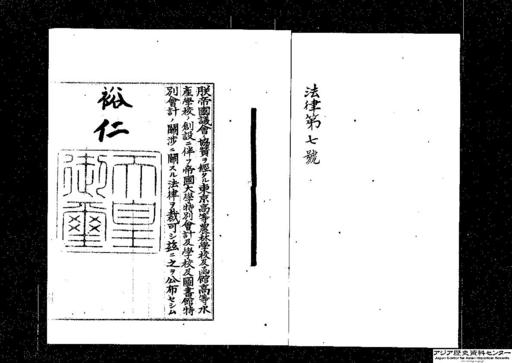 法律第七號
朕帝國議會ノ協賛ヲ經タル東京高等農林學校及函館高等水
産學校ノ創設ニ伴フ帝國大學特別會計及學校及圖書館特
別會計ノ關渉ニ關スル法律ヲ裁可シ茲ニ之ヲ公布セシム
裕仁
天皇
御璽
アジア歴史資料センター
Japan Center for Asian Historical Records